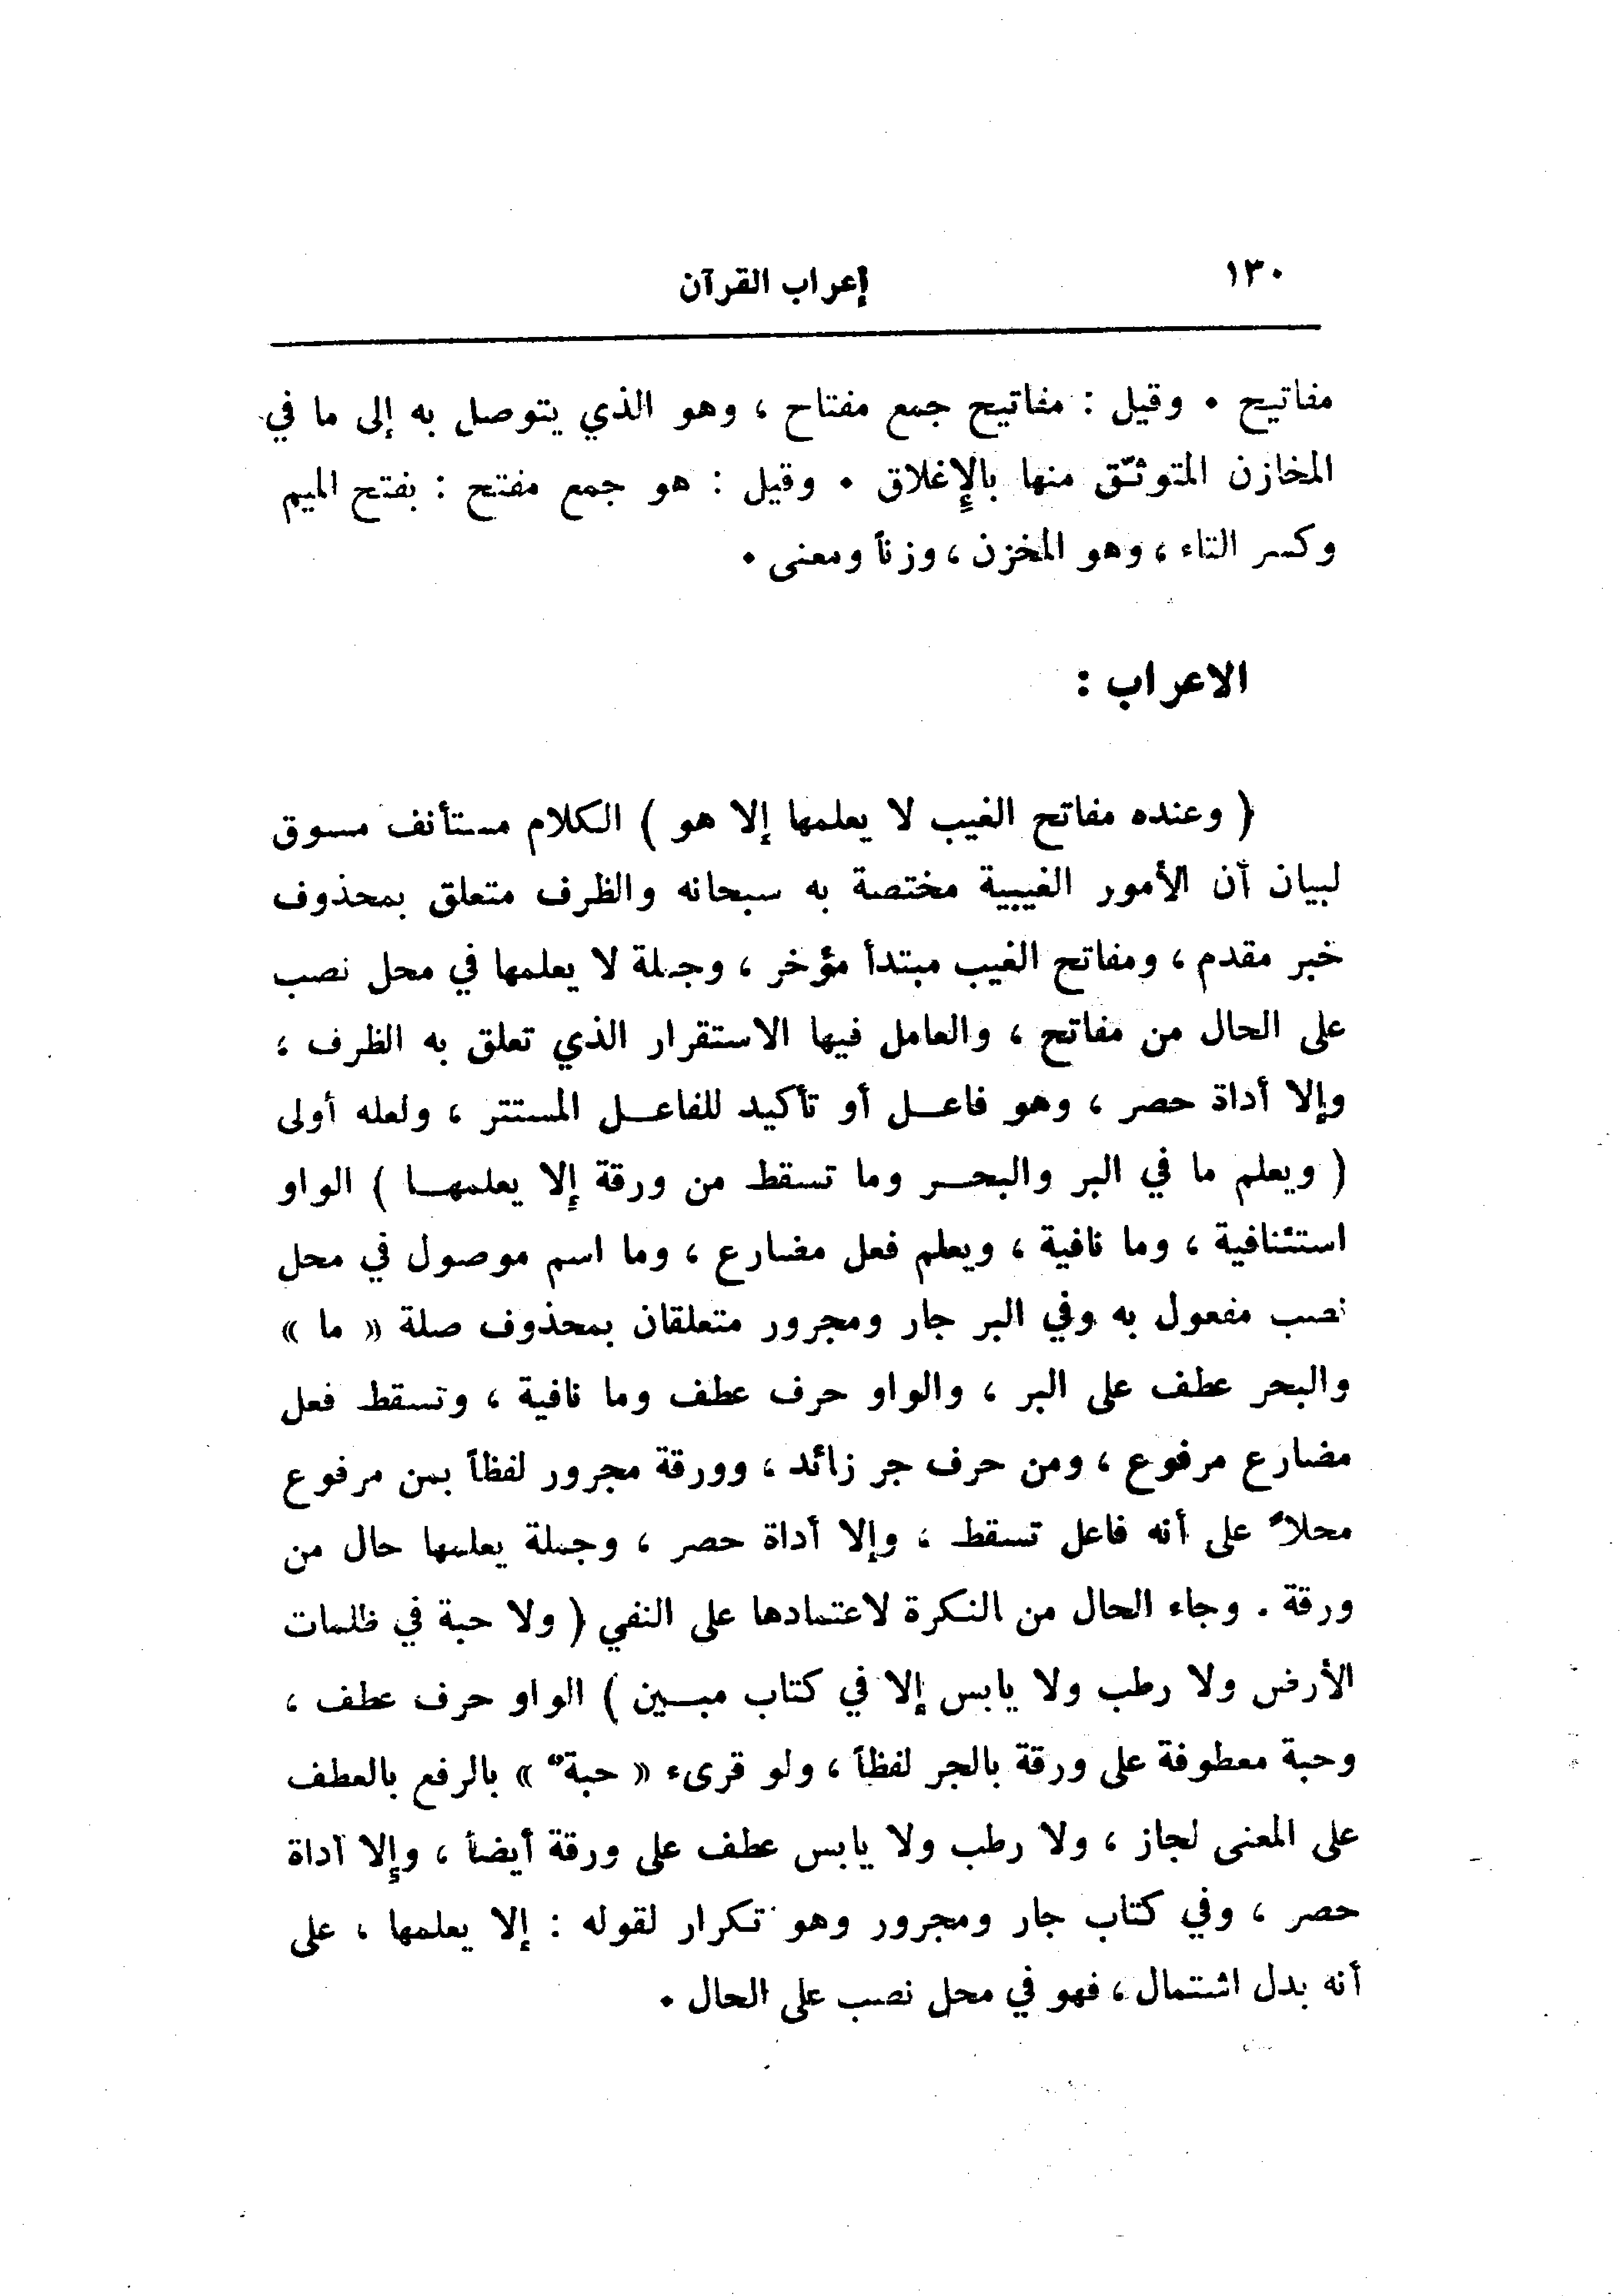 ١٣٠
إعراب القرآن
مفاتيح . وقيل : مفاتيح جمع مفتاح ، وهو الذي يتوصل به إلى ما في
المخازن المتوثّق منها بالإغلاق . وقيل : هو جمع مفتح : بفتح الميم
وكسر التاء ، وهو المخزن ، وزناً ومعنى .
الاعراب :
( وعنده مفاتح الغيب لا يعلمها إلا هو ) الكلام مستأنف مسوق
لبيان أن الأمور الغيبية مختصة به سبحانه والظرف متعلق بمحذوف
خبر مقدم ، ومفاتح الغيب مبتدأ مؤخر ، وجملة لا يعلمها في محل نصب
على الحال من مفاتح ، والعامل فيها الاستقرار الذي تعلق به الظرف ،
وإلا أداة حصر ، وهو فاعل أو تأكيد للفاعل المستتر ، ولعله أولى
( ويعلم ما في البر والبحر وما تسقط من ورقة إلا يعلمها ) الواو
استئنافية ، وما نافية ، ويعلم فعل مضارع ، وما اسم موصول في محل
نصب مفعول به وفي البر جار ومجرور متعلقان بمحذوف صلة « ما »
والبحر عطف على البر ، والواو حرف عطف وما نافية ، وتسقط فعل
مضارع مرفوع ، ومن حرف جر زائد ، وورقة مجرور لفظاً بمن مرفوع
محلاً على أنه فاعل تسقط ، وإلا أداة حصر ، وجملة يعلمها حال من
ورقة . وجاء الحال من النكرة لاعتمادها على النفي ( ولا حبة في ظلمات
الأرض ولا رطب ولا يابس إلا في كتاب مبين ) الواو حرف عطف ،
وحبة معطوفة على ورقة بالجر لفظاً ، ولو قرىء « حبةٌ » بالرفع بالعطف
على المعنى لجاز ، ولا رطب ولا يابس عطف على ورقة أيضاً ، وإلا أداة
حصر ، وفي كتاب جار ومجرور وهو تكرار لقوله : إلا يعلمها ، على
أنه بدل اشتمال ، فهو في محل نصب على الحال .